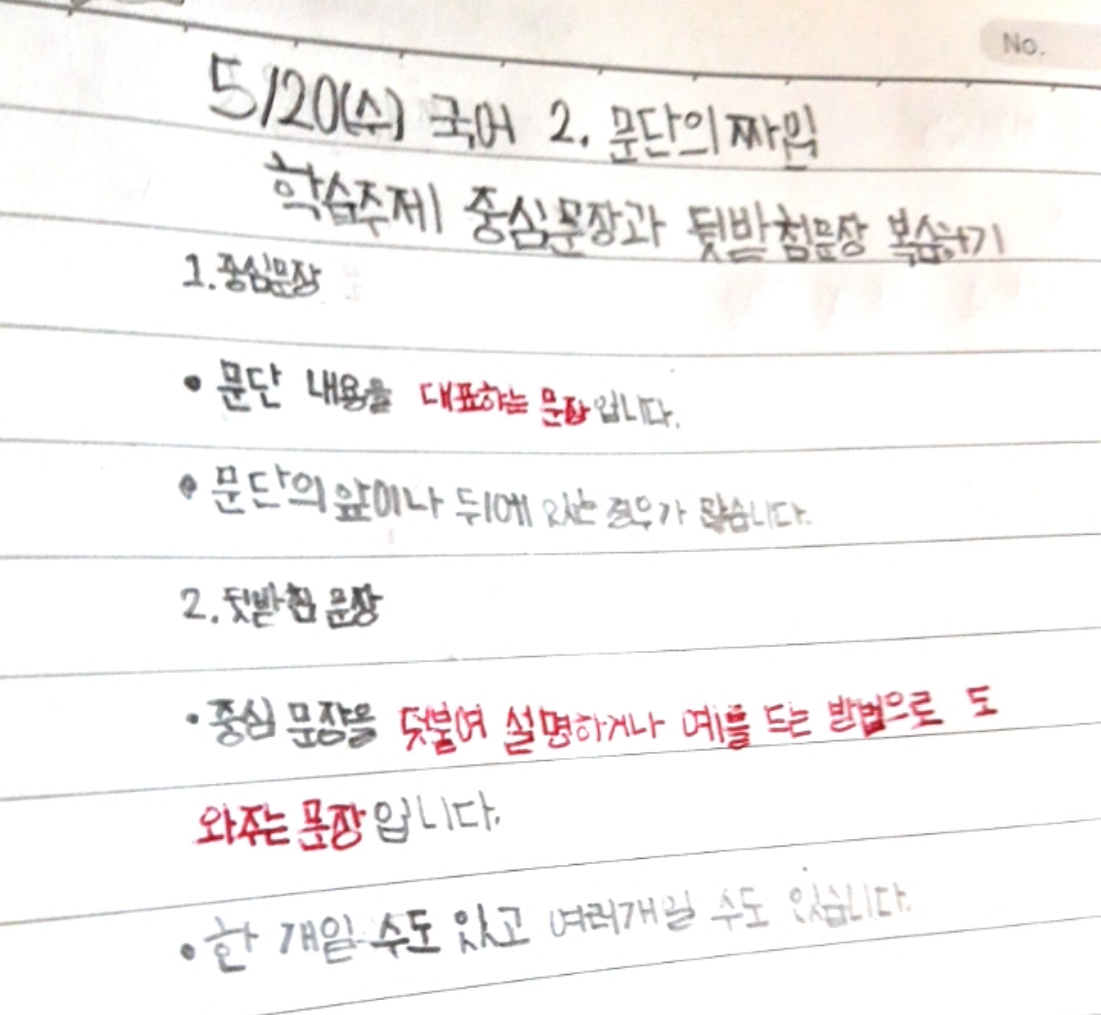 No.
5/20(수) 국어 2. 문단의 짜임
학습주제 중심문장과 뒷받침문장 복습하기
1. 중심문장
• 문단 내용을 대표하는 문장입니다.
• 문단의 앞이나 뒤에 있는 경우가 많습니다.
2. 뒷받침 문장
• 중심 문장을 덧붙여 설명하거나 예를 드는 방법으로 도
와주는 문장입니다.
• 한 개일 수도 있고 여러개일 수도 있습니다.